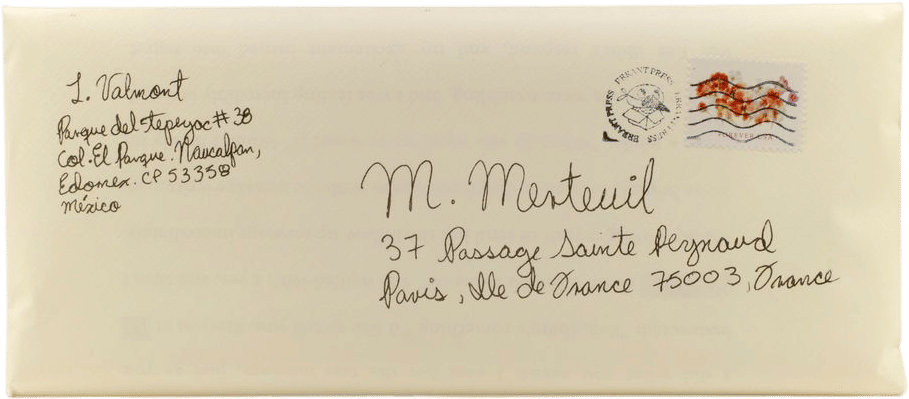 L. Valmont
Parque del tepeyac # 38
Col. El Parque. Naucalpan,
Edomex. CP 53398
México
ERRANT PRESS ERRANT PRESS ERRANT PRESS
FOREVER USA
M. Merteuil
37 Passage Sainte Peynaud
Paris, Ile de France 75003, France